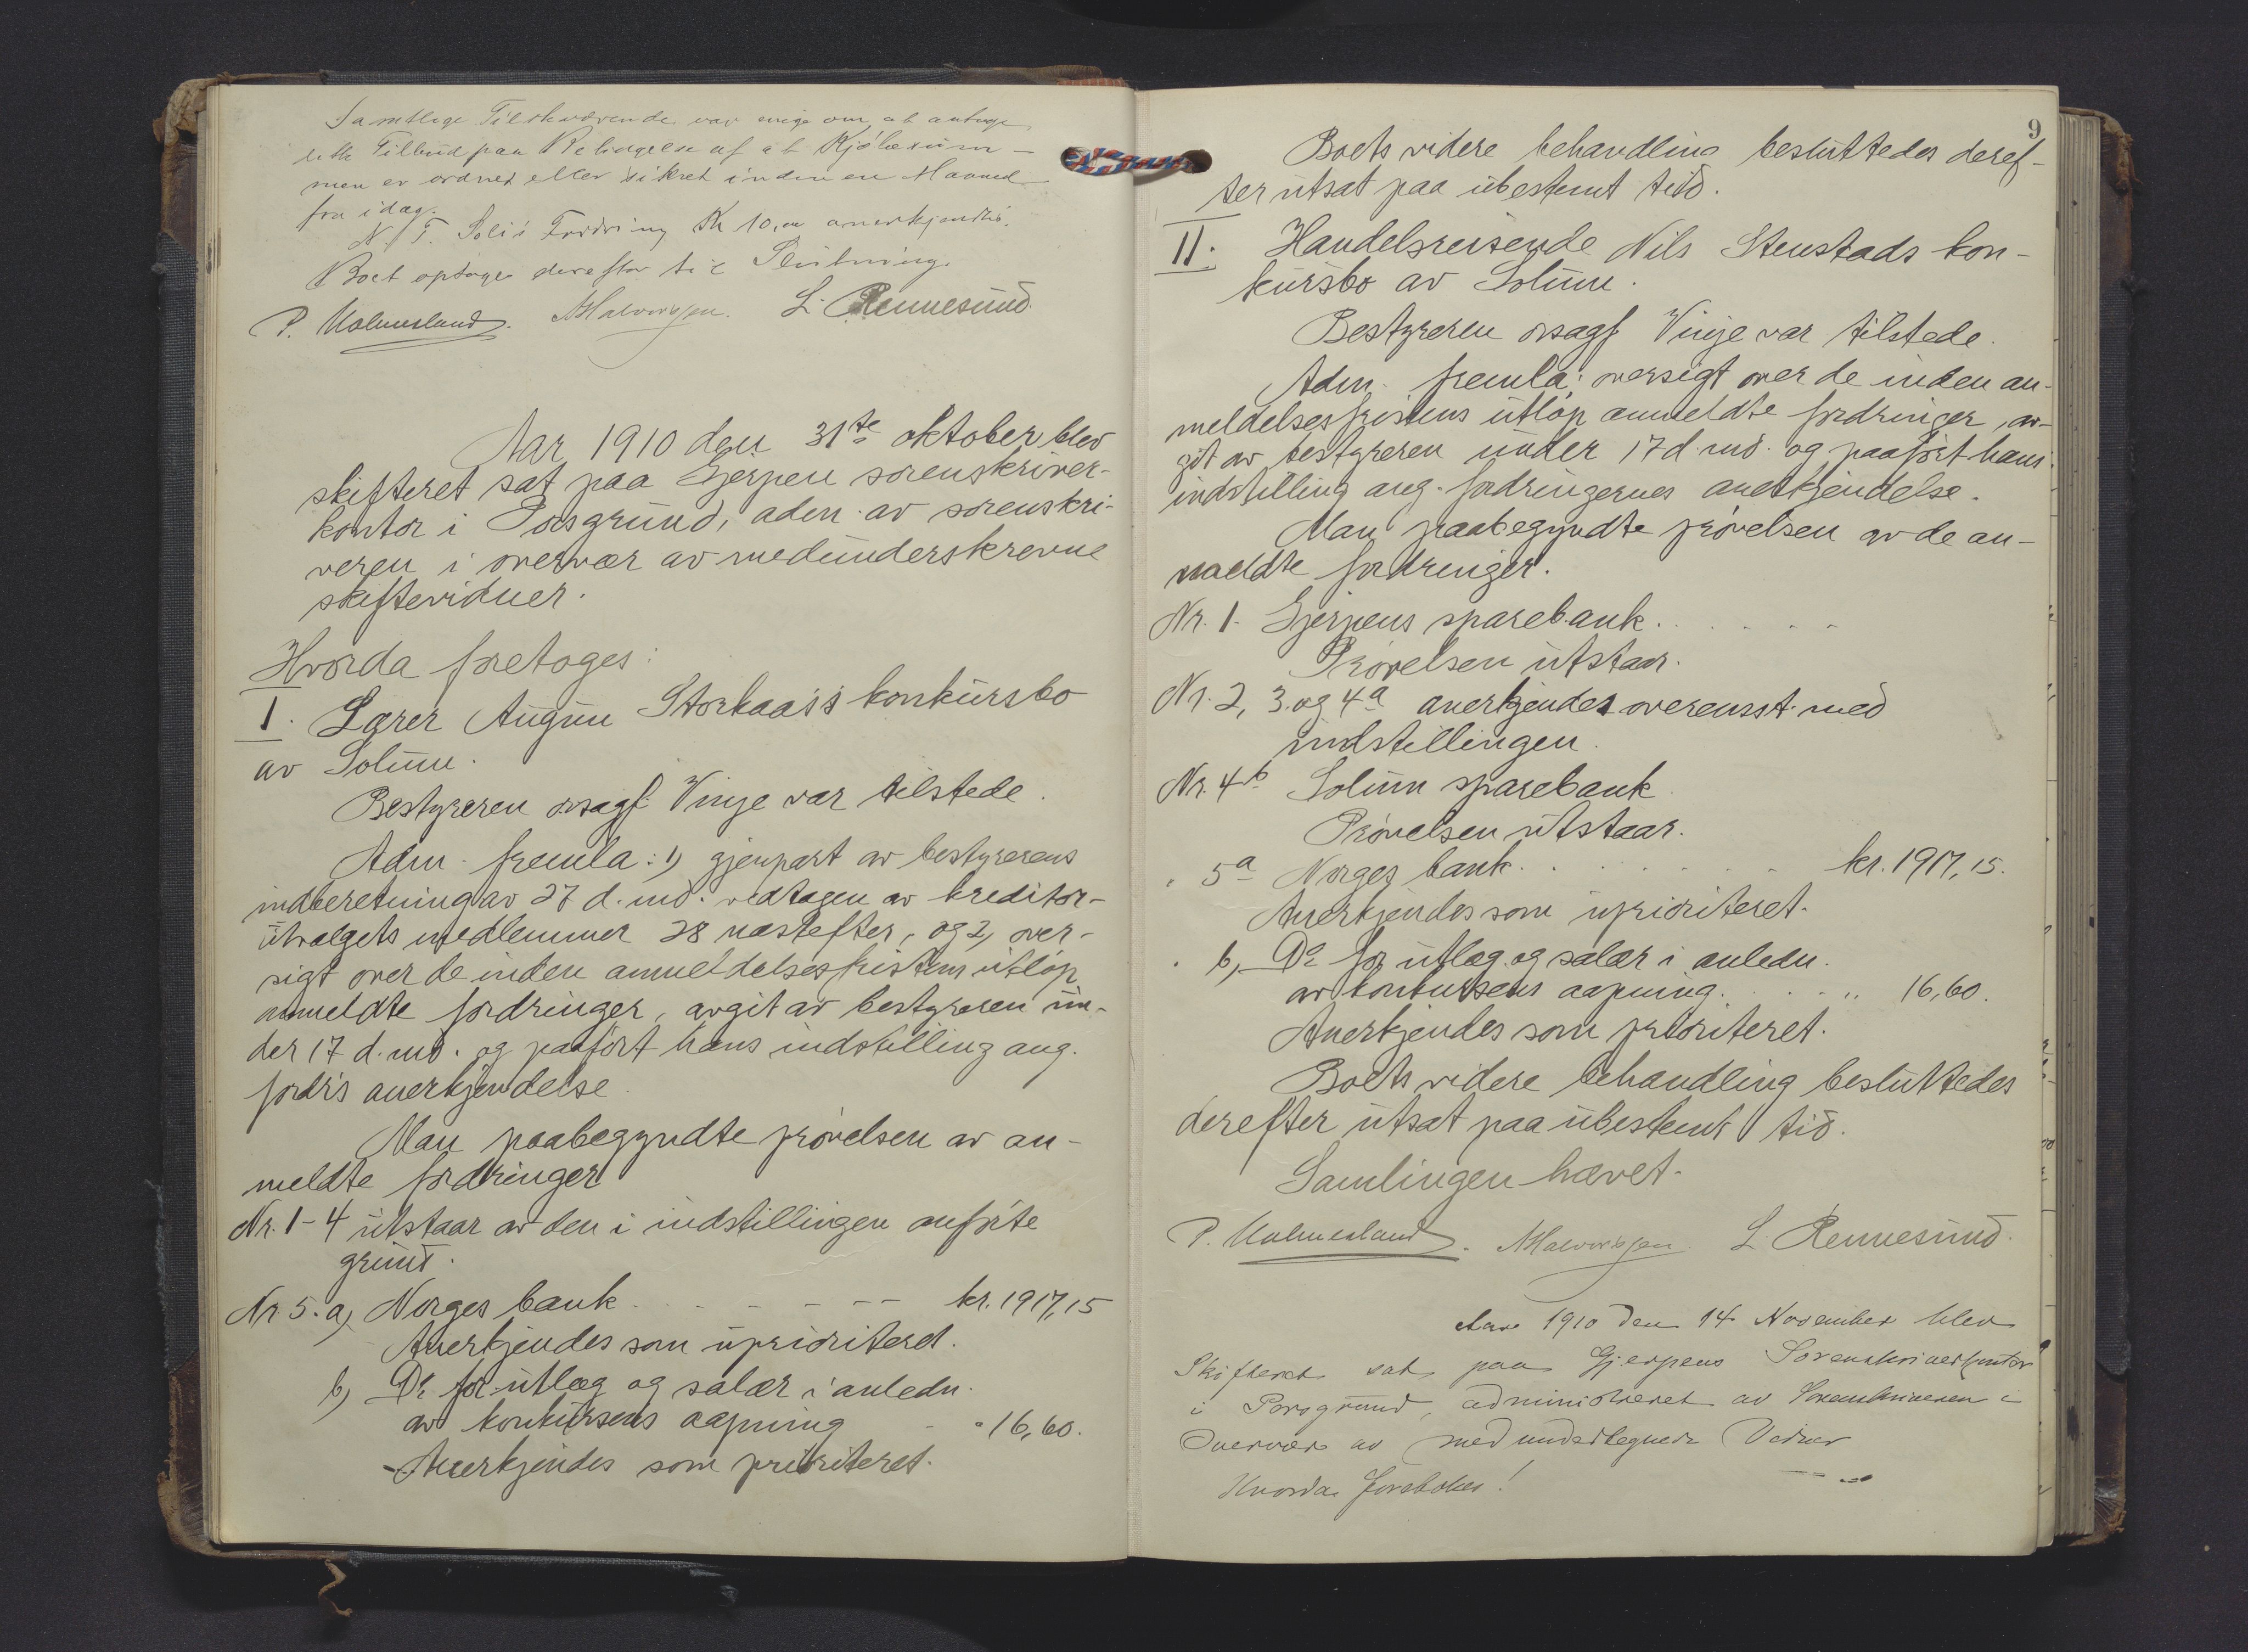 Samtlige Tilstedeværende var enige om at antage
dette Tilbud paa Betingelse af at Kjøbesum-
men er ordnet eller sikret inden en Maaned
fra idag.
N. T. Fordring Kr 10,00 anerkjendtes.
Boet optoges derefter til Slutning.
P. Holmesland. Halvorsen. L. Rennesund.
Aar 1910 den 31te oktober blev
skifteret sat paa Gjerpen sorenskriver-
kontor i Porsgrund, adm. av sorenskri-
veren i overvær av medunderskrevne
skiftevidner.
Hvorda foretoges:
I. Lærer Augun Storkaas's konkursbo
av Solum.
Bestyreren o.r.sagf. Vinje var tilstede.
Adm. fremla: 1) gjenpart av bestyrerens
indberetning av 27 d. md. vedtagen av kreditor-
utvalgets medlemmer 28 næstefter, og 2, over-
sigt over de inden anmeldelsesfristens utløp
anmeldte fordringer, avgit av bestyreren un-
der 17 d. md. og paaført hans indstilling ang.
fordr's anerkjendelse
Man paabegyndte prøvelsen av an-
meldte fordringer
Nr. 1-4 utstaar av den i indstillingen anførte
grund.
Nr 5. a, Norges bank. - - - - - kr. 1917,15
Anerkjendes som uprioriteret.
b, Do for utlæg og salær i anledn.
av konkursens aapning - " 16,60.
- Anerkjendes som prioriteret.
9
Boets videre behandling besluttedes deref-
ter utsat paa ubestemt tid.
II. Handelsreisende Nils Stenstads kon-
kursbo av Solum.
Bestyreren o.r.sagf Vinje var tilstede.
Adm. fremla: oversigt over de inden an-
meldelsesfristens utløp anmeldte fordringer, av-
git av bestyreren under 17 d. md. og paaført hans
indstilling ang. fordringernes anerkjendelse.
Man paabegyndte prøvelsen av de an-
meldte fordringer.
Nr. 1. Gjerpens sparebank. . . . . .
Prøvelsen utstaar.
Nr. 2, 3. og 4a anerkjendes overensst. med
indstillingen.
Nr. 4b Solum sparebank
Prøvelsen utstaar.
" 5a Norges bank. . . . . . . . kr. 1917,15.
Anerkjendes som uprioriteret.
" b, Do for utlæg og salær i anledn.
av konkursens aapning. . . . " 16,60.
Anerkjendes som prioriteret.
Boets videre behandling besluttedes
derefter utsat paa ubestemt tid.
Samlingen hævet.
P. Holmesland. Halvorsen. L. Rennesund.
Aar 1910 den 14 November blev
Skifteret sat paa Gjerpens Sorenskriverkontor
i Porsgrund, administreret av Sorenskriveren i
Overvær av medundertegnede Vidner
Hvorda foretokes!